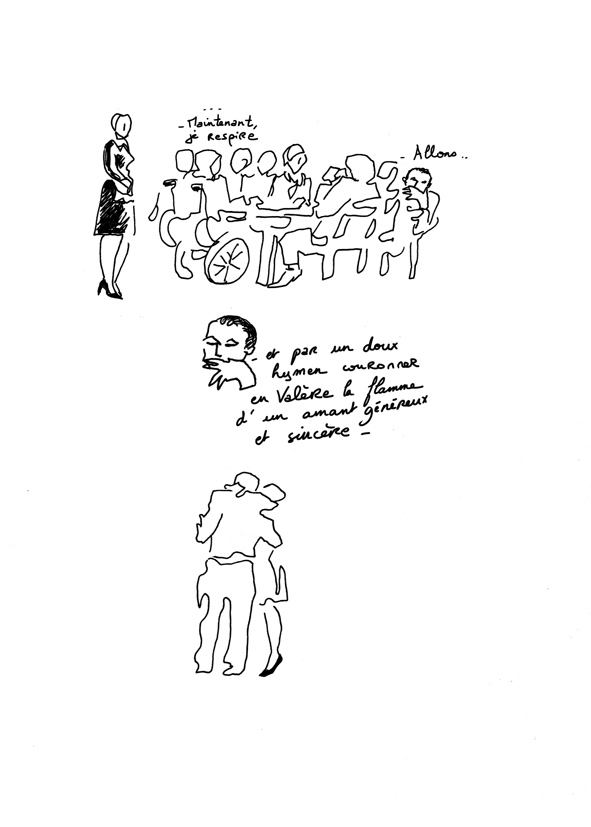 ...
- Maintenant,
je respire
- Allons..
- et par un doux
hymen couronner
en Valère la flamme
d'un amant généreux
et sincère -